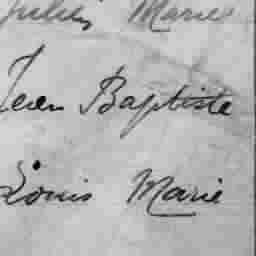 Julien Marie
Jean Baptiste
Louis Marie